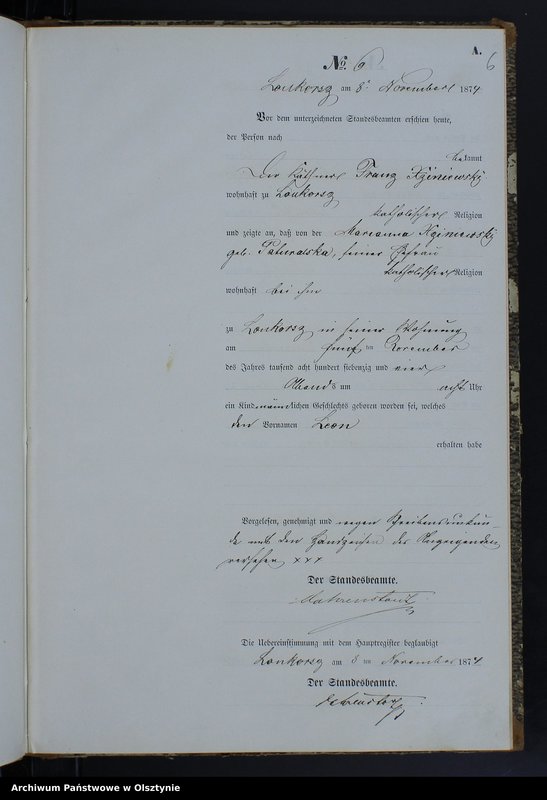 A.
6
No. 6
Lonkorsz am 8t November 1874
Vor dem unterzeichneten Standesbeamten erschien heute,
der Person nach
bekannt
Der Käthner Franz
wohnhaft zu Lonkorsz
katholischer Religion
und zeigte an, daß von der Marianna
geb. seiner Ehefrau
katholischer Religion
wohnhaft bei ihm
zu Lonkorsz in seiner Wohnung
am fünf ten November
des Jahres tausend acht hundert siebenzig und vier
Abends um acht Uhr
ein Kind männlichen Geschlechts geboren worden sei, welches
den Vornamen Leon
erhalten habe
Vorgelesen, genehmigt und wegen Schreibensunkun-
de mit den Handzeichen des Anzeigenden
versehen xxx
Der Standesbeamte.
Die Uebereinstimmung mit dem Hauptregister beglaubigt
Lonkorsz am 8 ten November 1874
Der Standesbeamte.
Archiwum Państwowe w Olsztynie